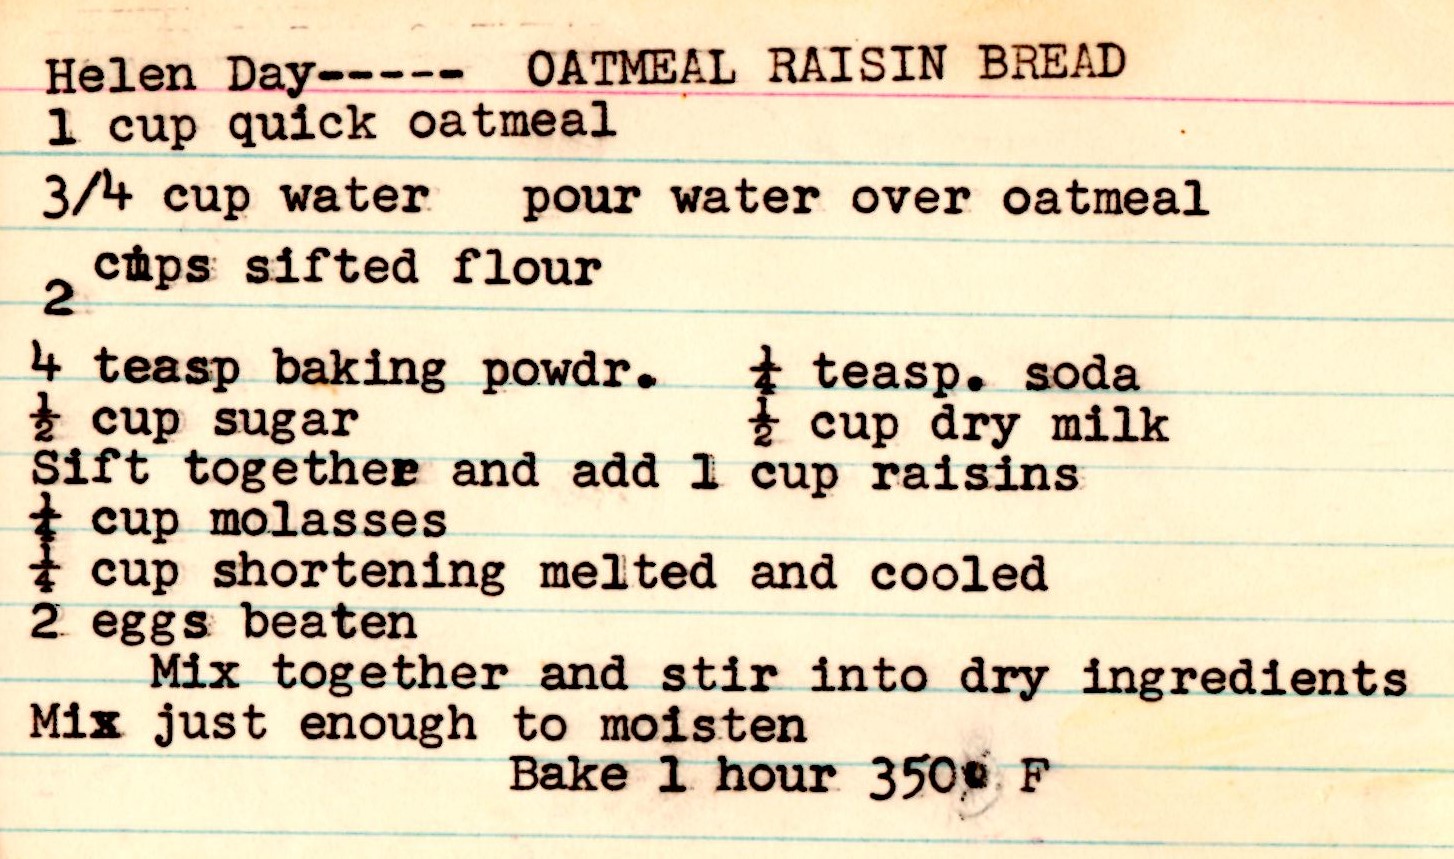 Helen Day----- OATMEAL RAISIN BREAD
1 cup quick oatmeal
3/4 cup water pour water over oatmeal
2 cups sifted flour
4 teasp baking powdr. ¼ teasp. soda
½ cup sugar ½ cup dry milk
Sift together and add 1 cup raisins
¼ cup molasses
¼ cup shortening melted and cooled
2 eggs beaten
Mix together and stir into dry ingredients
Mix just enough to moisten
Bake 1 hour 350° F